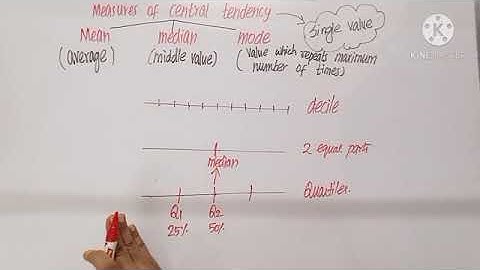 Measures of central tendency
single value
Mean median mode
(average) (middle value) (value which repeats maximum number of times)
decile
2 equal parts
median
Quartiles
Q1 Q2
25% 50%